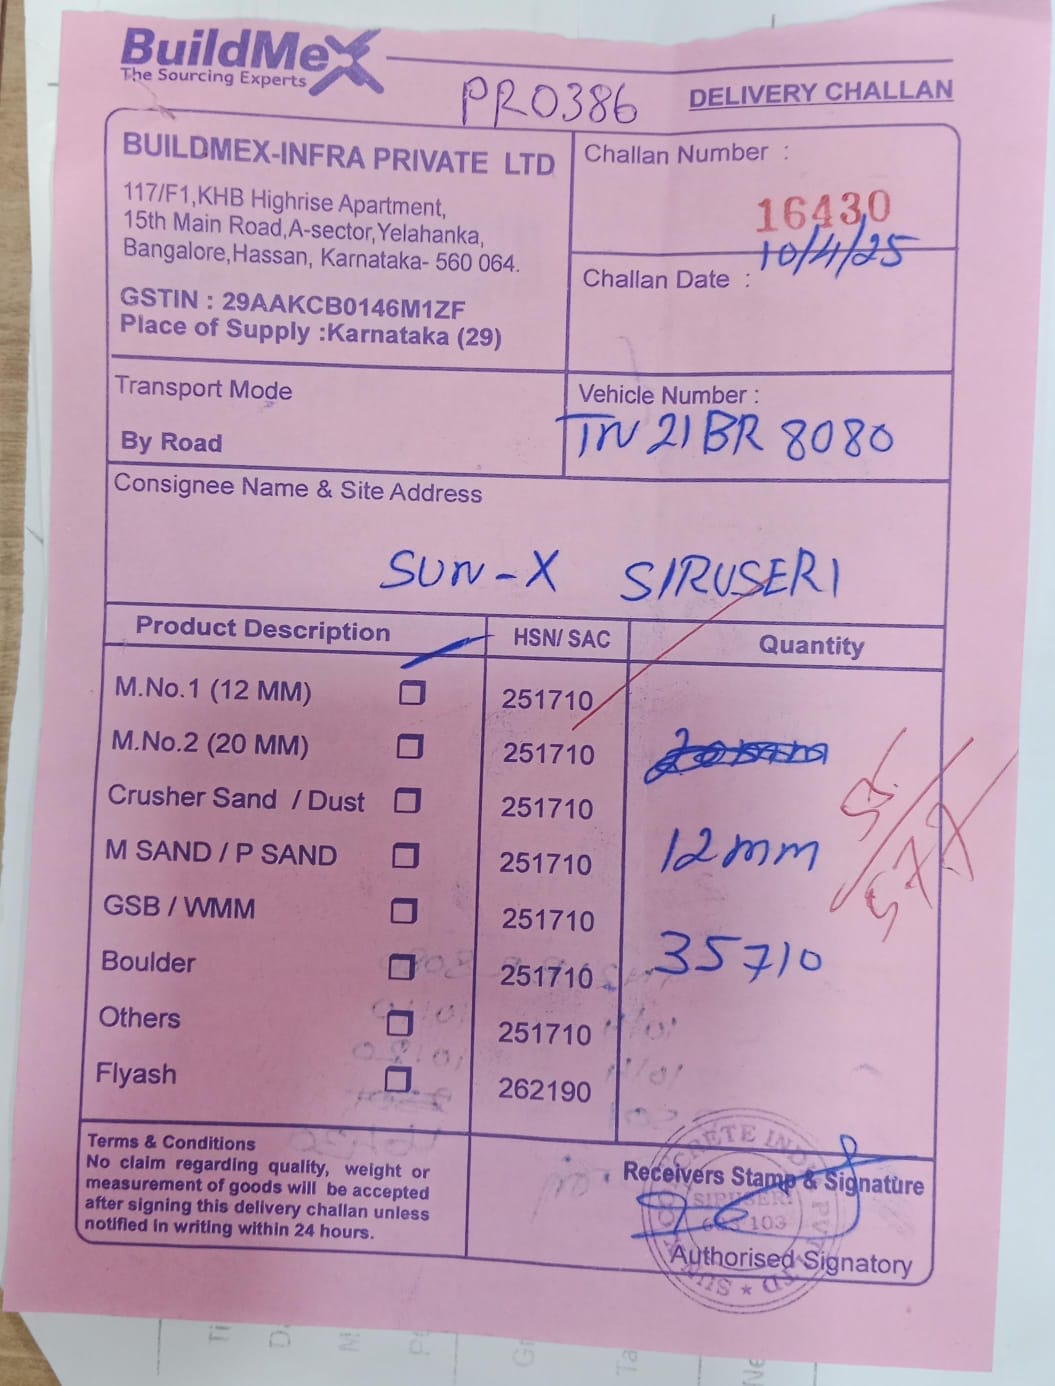 BuildMeX
The Sourcing Experts
PRO386
DELIVERY CHALLAN
BUILDMEX-INFRA PRIVATE LTD
117/F1,KHB Highrise Apartment,
15th Main Road,A-sector,Yelahanka,
Bangalore,Hassan, Karnataka- 560 064.
GSTIN : 29AAKCB0146M1ZF
Place of Supply :Karnataka (29)
Challan Number :
16430
10/4/25
Challan Date :
Transport Mode
By Road
Vehicle Number :
TN 21 BR 8080
Consignee Name & Site Address
SUN-X SIRUSERI
Product Description HSN/ SAC Quantity
M.No.1 (12 MM) 251710
M.No.2 (20 MM) 251710
Crusher Sand / Dust 251710
M SAND / P SAND 251710
12mm
GSB / WMM 251710
35710
Boulder 251710
Others 251710
Flyash 262190
Terms & Conditions
No claim regarding quality, weight or
measurement of goods will be accepted
after signing this delivery challan unless
notified in writing within 24 hours.
Receivers Stamp & Signature
SIRUSERI
603 103
Authorised Signatory